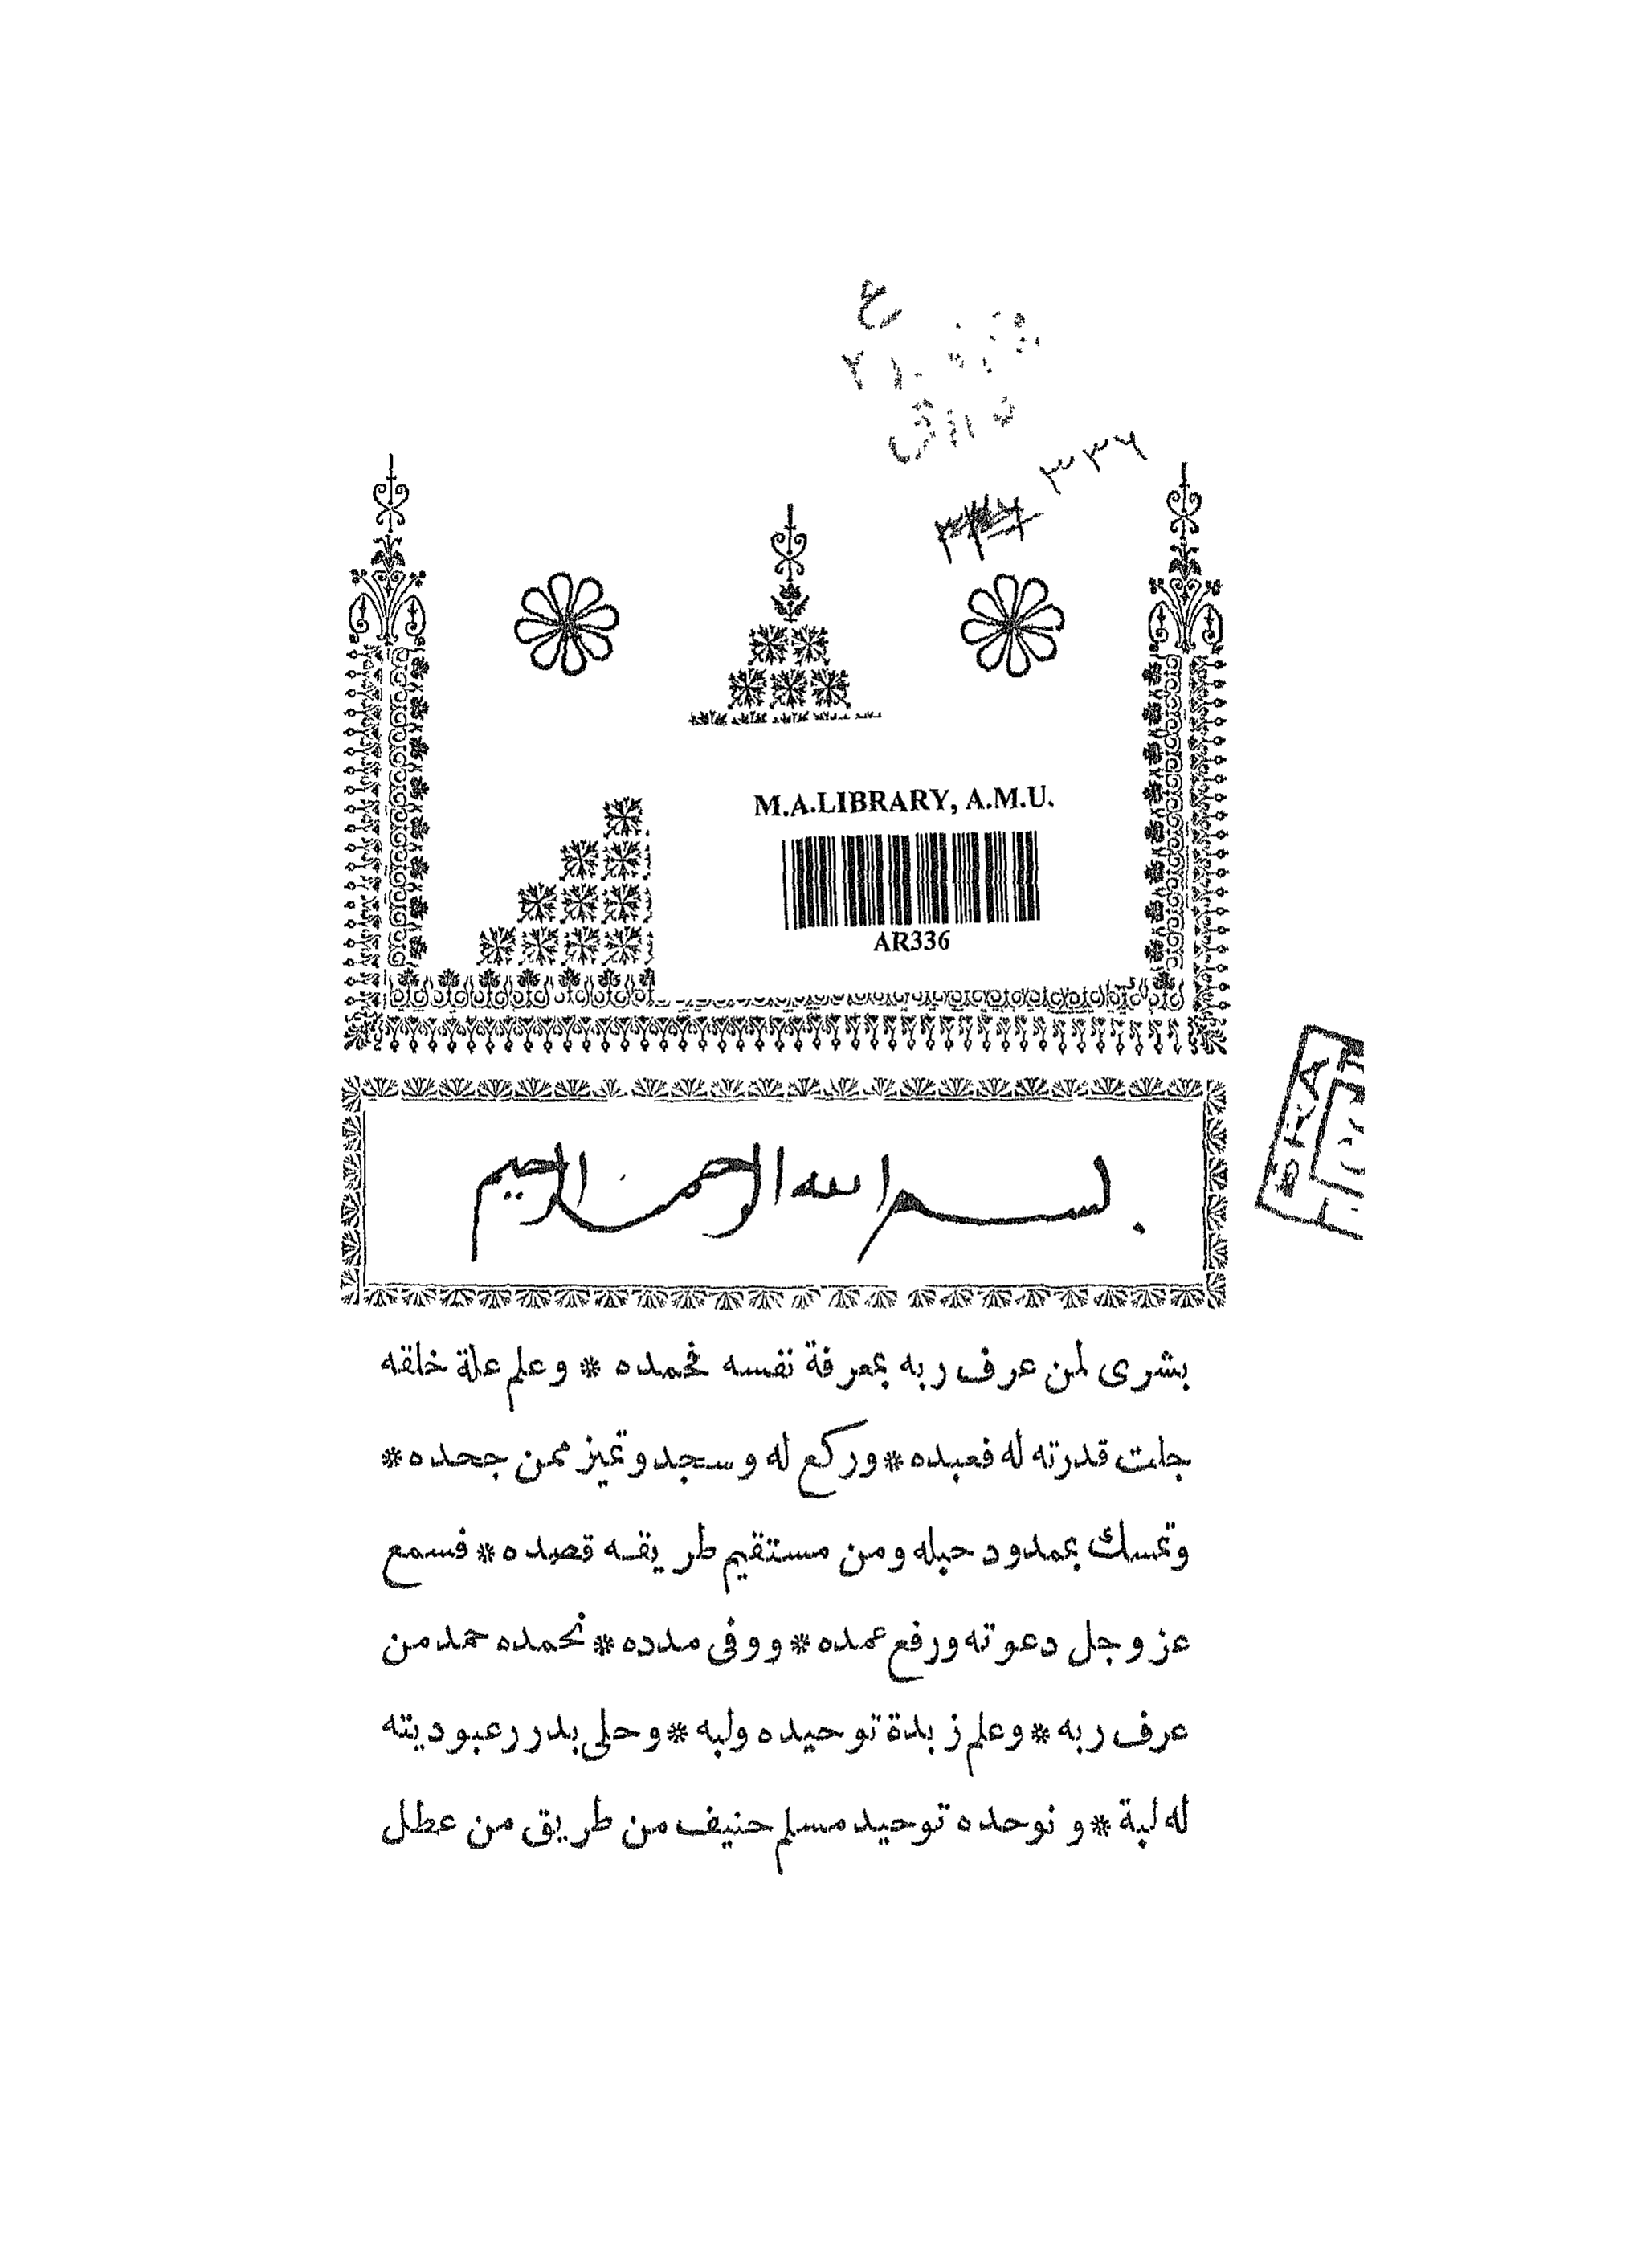 ع
٣٣٦
M.A.LIBRARY, A.M.U.
AR336
بسم الله الرحمن الرحيم
بشرى لمن عرف ربه بمعرفة نفسه فحمده * وعلم علة خلقه
جلت قدرته له فعبده * وركع له وسجد وتميز ممن جحده *
وتمسك بممدود حبله ومن مستقيم طريقه قصده * فسمع
عز وجل دعوته ورفع عمده * ووفى مدده * نحمده حمد من
عرف ربه * وعلم زبدة توحيده ولبه * وحلى بدرر عبوديته
له لبة * ونوحده توحيد مسلم حنيف من طريق من عطل